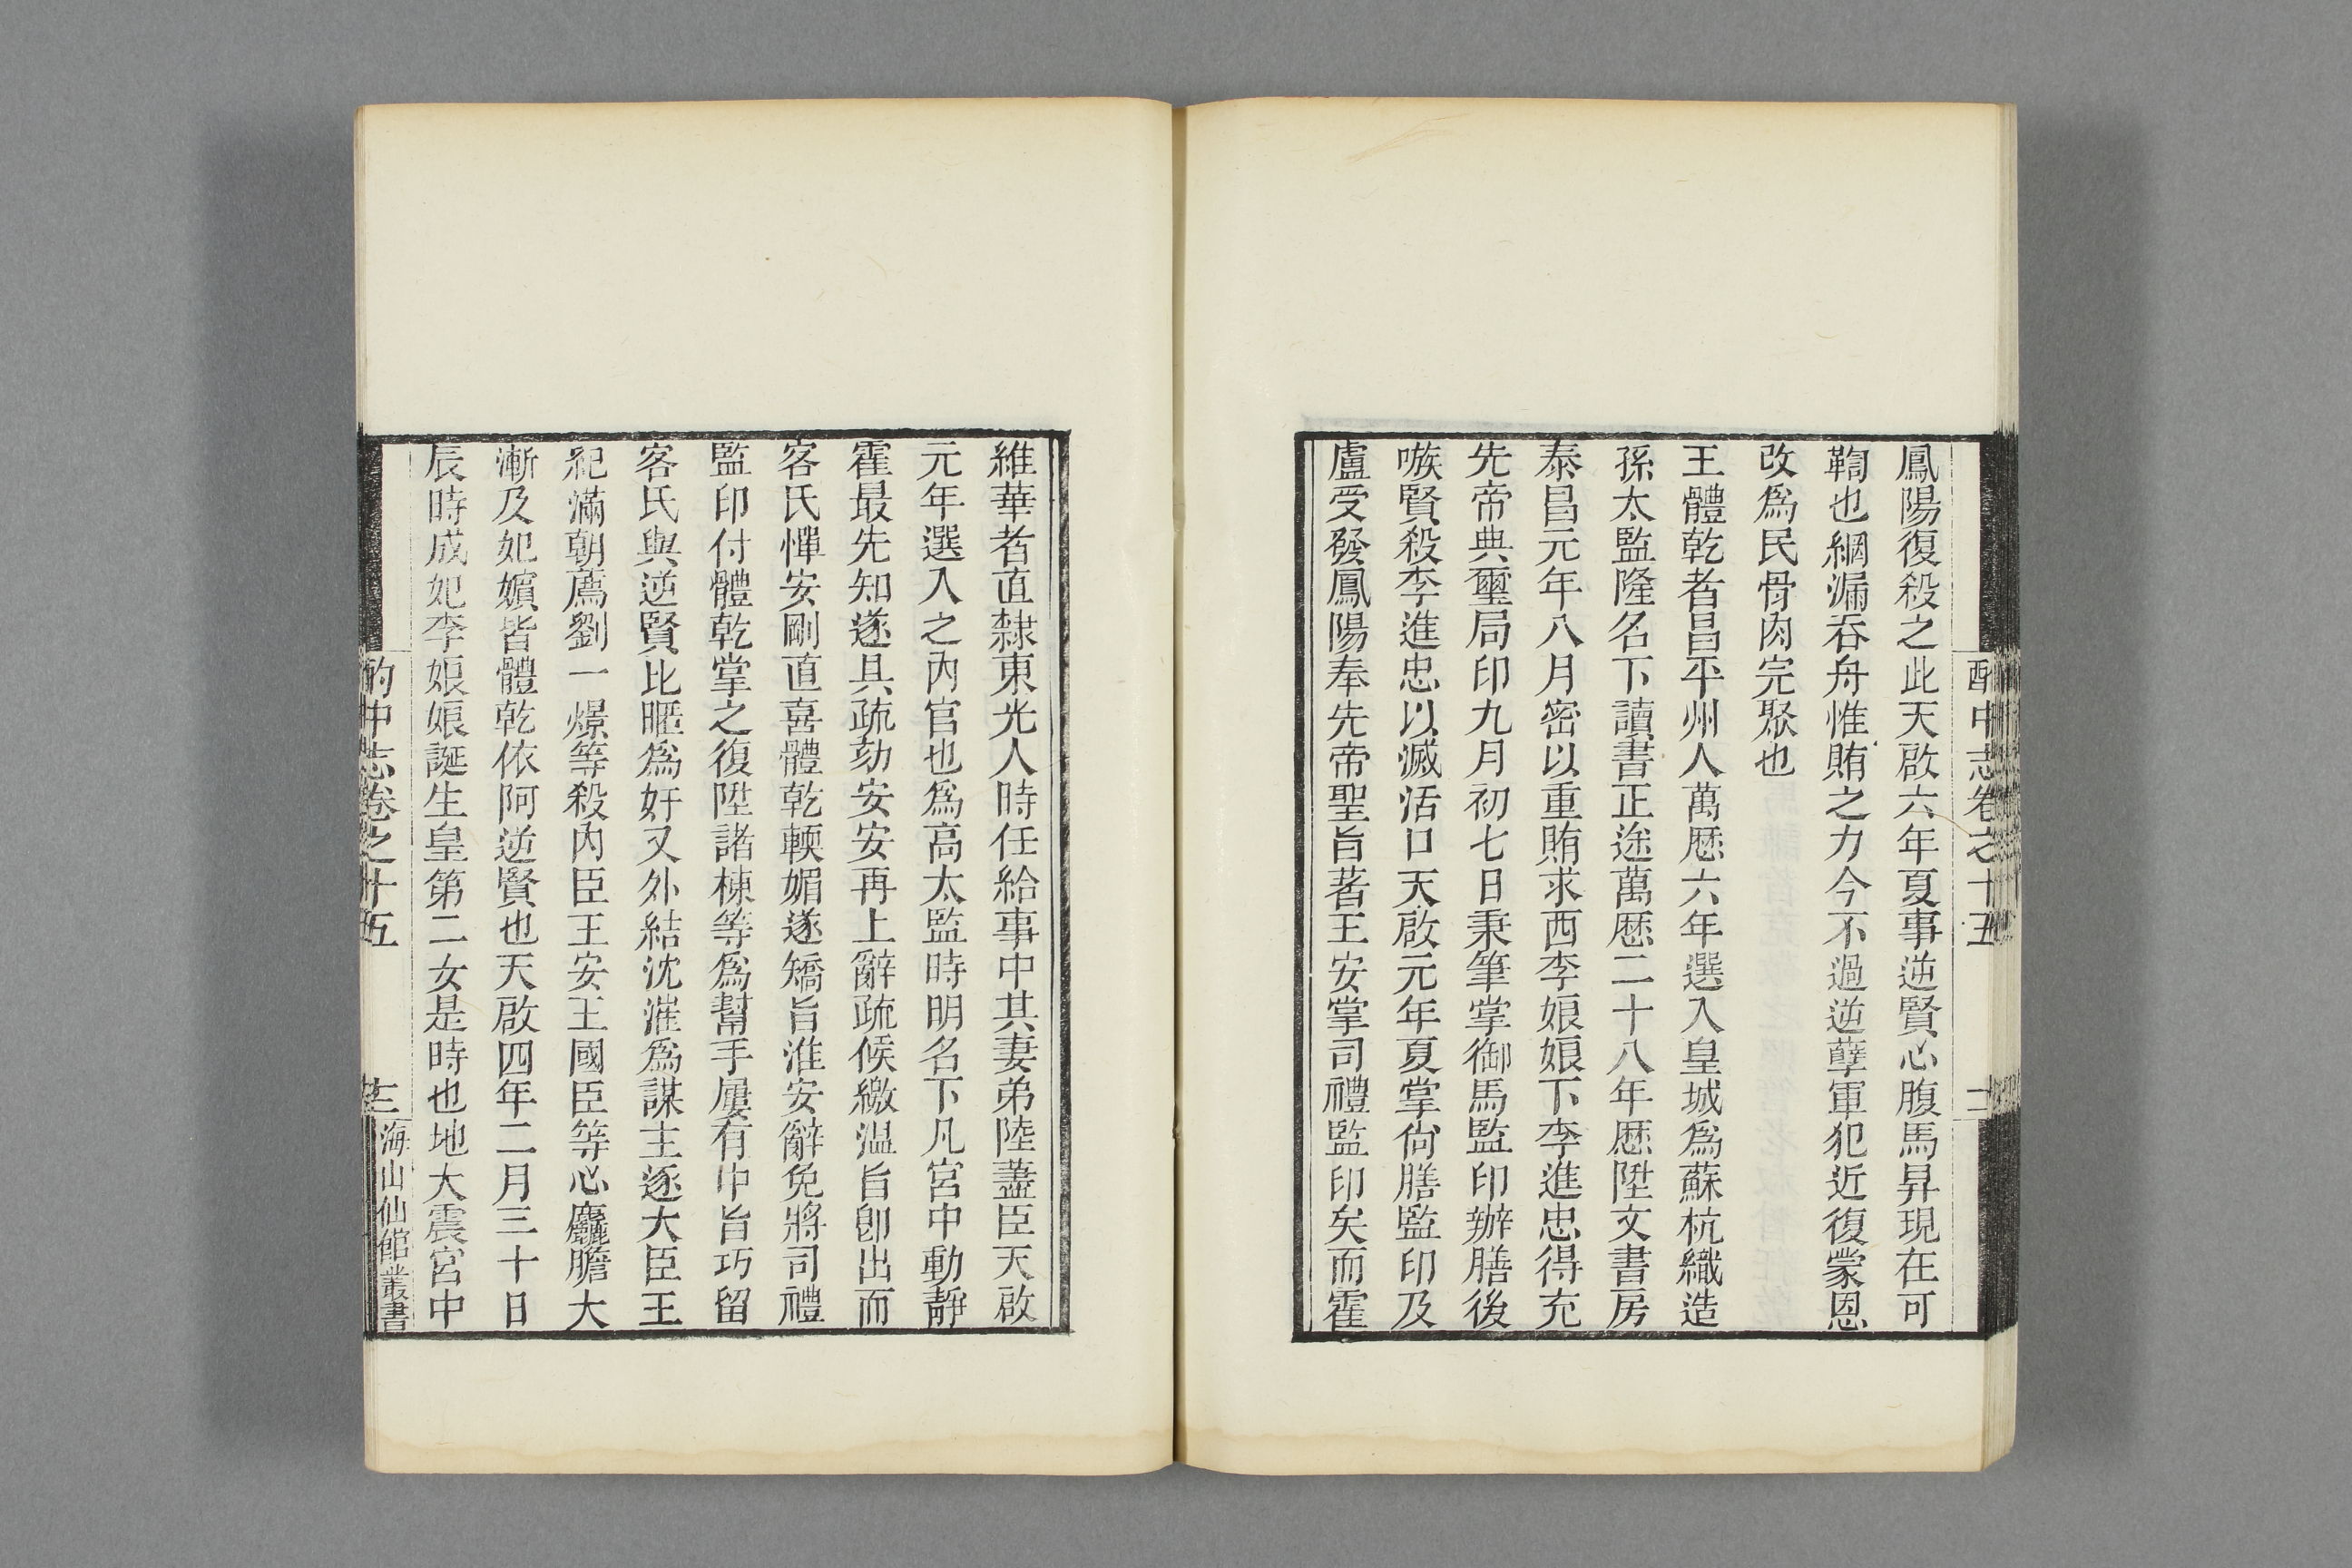 鳳陽復殺之此天啟六年夏事逆賢心腹馬昇現在可
鞫也網漏吞舟惟賄之力今不過逆孽軍犯近復蒙恩
改爲民骨肉完聚也
王體乾者昌平州人萬厯六年選入皇城爲蘇杭織造
孫太監隆名下讀書正途萬厯二十八年厯陞文書房
泰昌元年八月密以重賄求西李娘娘下李進忠得充
先帝典璽局印九月初七日秉筆掌御馬監印辦膳後
嗾賢殺李進忠以滅活口天啟元年夏掌尙膳監印及
盧受發鳳陽奉先帝聖旨著王安掌司禮監印矣而霍
酌中志卷之十五
維華者直隸東光人時任給事中其妻弟陸藎臣天啟
元年選入之內官也爲高太監時明名下凡宮中動靜
霍最先知遂具疏劾安安再上辭疏候繳溫旨卽出而
客氏憚安剛直喜體乾輭媚遂矯旨准安辭免將司禮
監印付體乾掌之復陞諸棟等爲幫手屢有中旨巧留
客氏與逆賢比暱爲奸又外結沈㴶爲謀主逐大臣王
紀滿朝薦劉一燝等殺內臣王安王國臣等心麤膽大
漸及妃嬪皆體乾依阿逆賢也天啟四年二月三十日
辰時成妃李娘娘誕生皇第二女是時也地大震宮中
酌中志卷之十五
海山仙館叢書